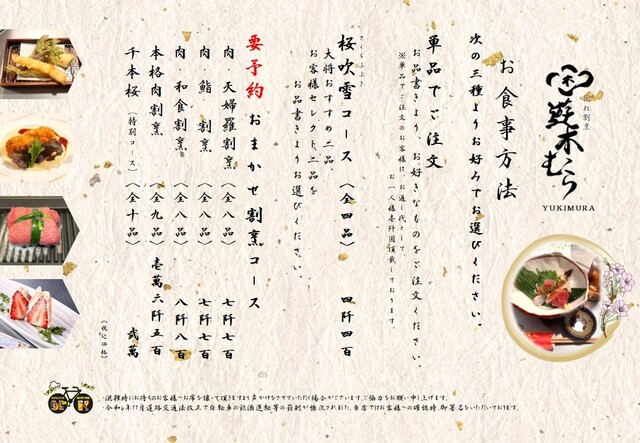 伝統割烹
蘇木むら
YUKIMURA
お食事方法
次の三種よりお好みでお選びください。
単品でご注文
お品書きより、お好きなものをご注文ください
※単品でご注文のお客様は、お通し代として
お一人様壱阡円頂戴しております。
さくらふぶき
桜吹雪コース（全四品） 四阡四百
大将おすすめ二品
お客様セレクト二品を
お品書きよりお選びください。
要予約 おまかせ割烹コース
肉・天婦羅割烹（全八品） 七阡七百
肉・鮨割烹（全八品） 七阡七百
肉・和食割烹（全八品） 八阡八百
本格肉割烹（全九品） 壱萬六阡五百
千本桜（特別コース）（全十品） 弐萬
（税込価格）
・混雑時にお待ちのお客様へお席を譲って頂きますようお声かけをさせていただく場合がございます。ご協力をお願い申し上げます。
・令和6年11月道路交通法改正で自転車の飲酒運転等の罰則が強化されました。当店ではお客様への確認時、御署名をいただいております。